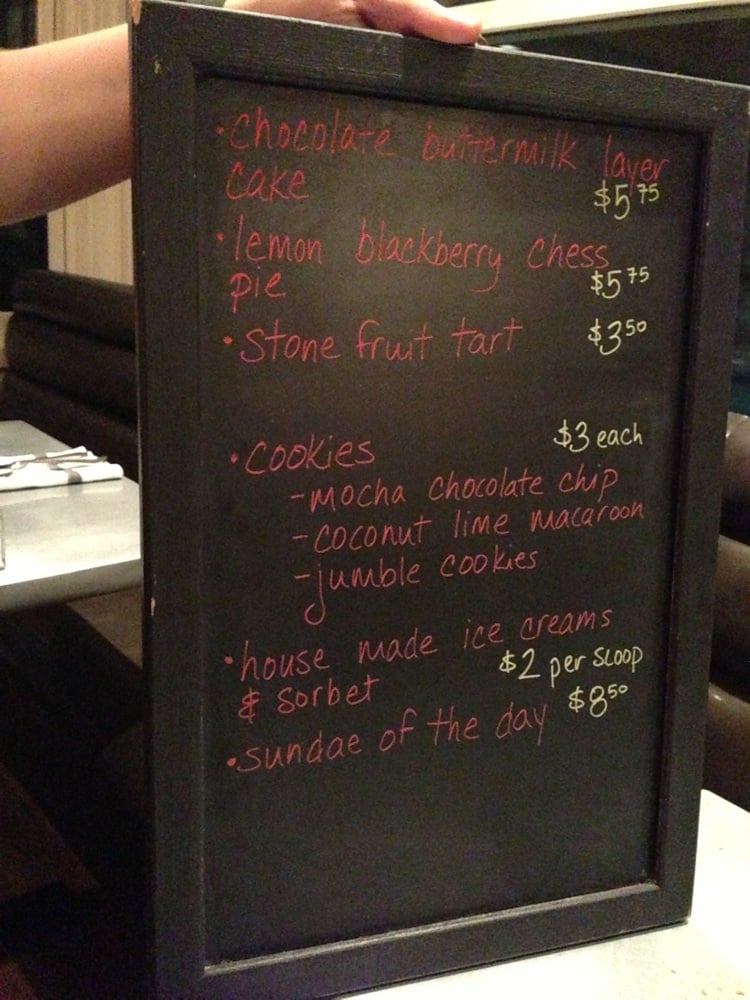 •chocolate buttermilk layer
cake $5 75
•lemon blackberry chess
pie $5 75
•stone fruit tart $3 50
•cookies $3 each
-mocha chocolate chip
-coconut lime macaroon
-jumble cookies
•house made ice creams
& sorbet $2 per scoop
•sundae of the day $8 50